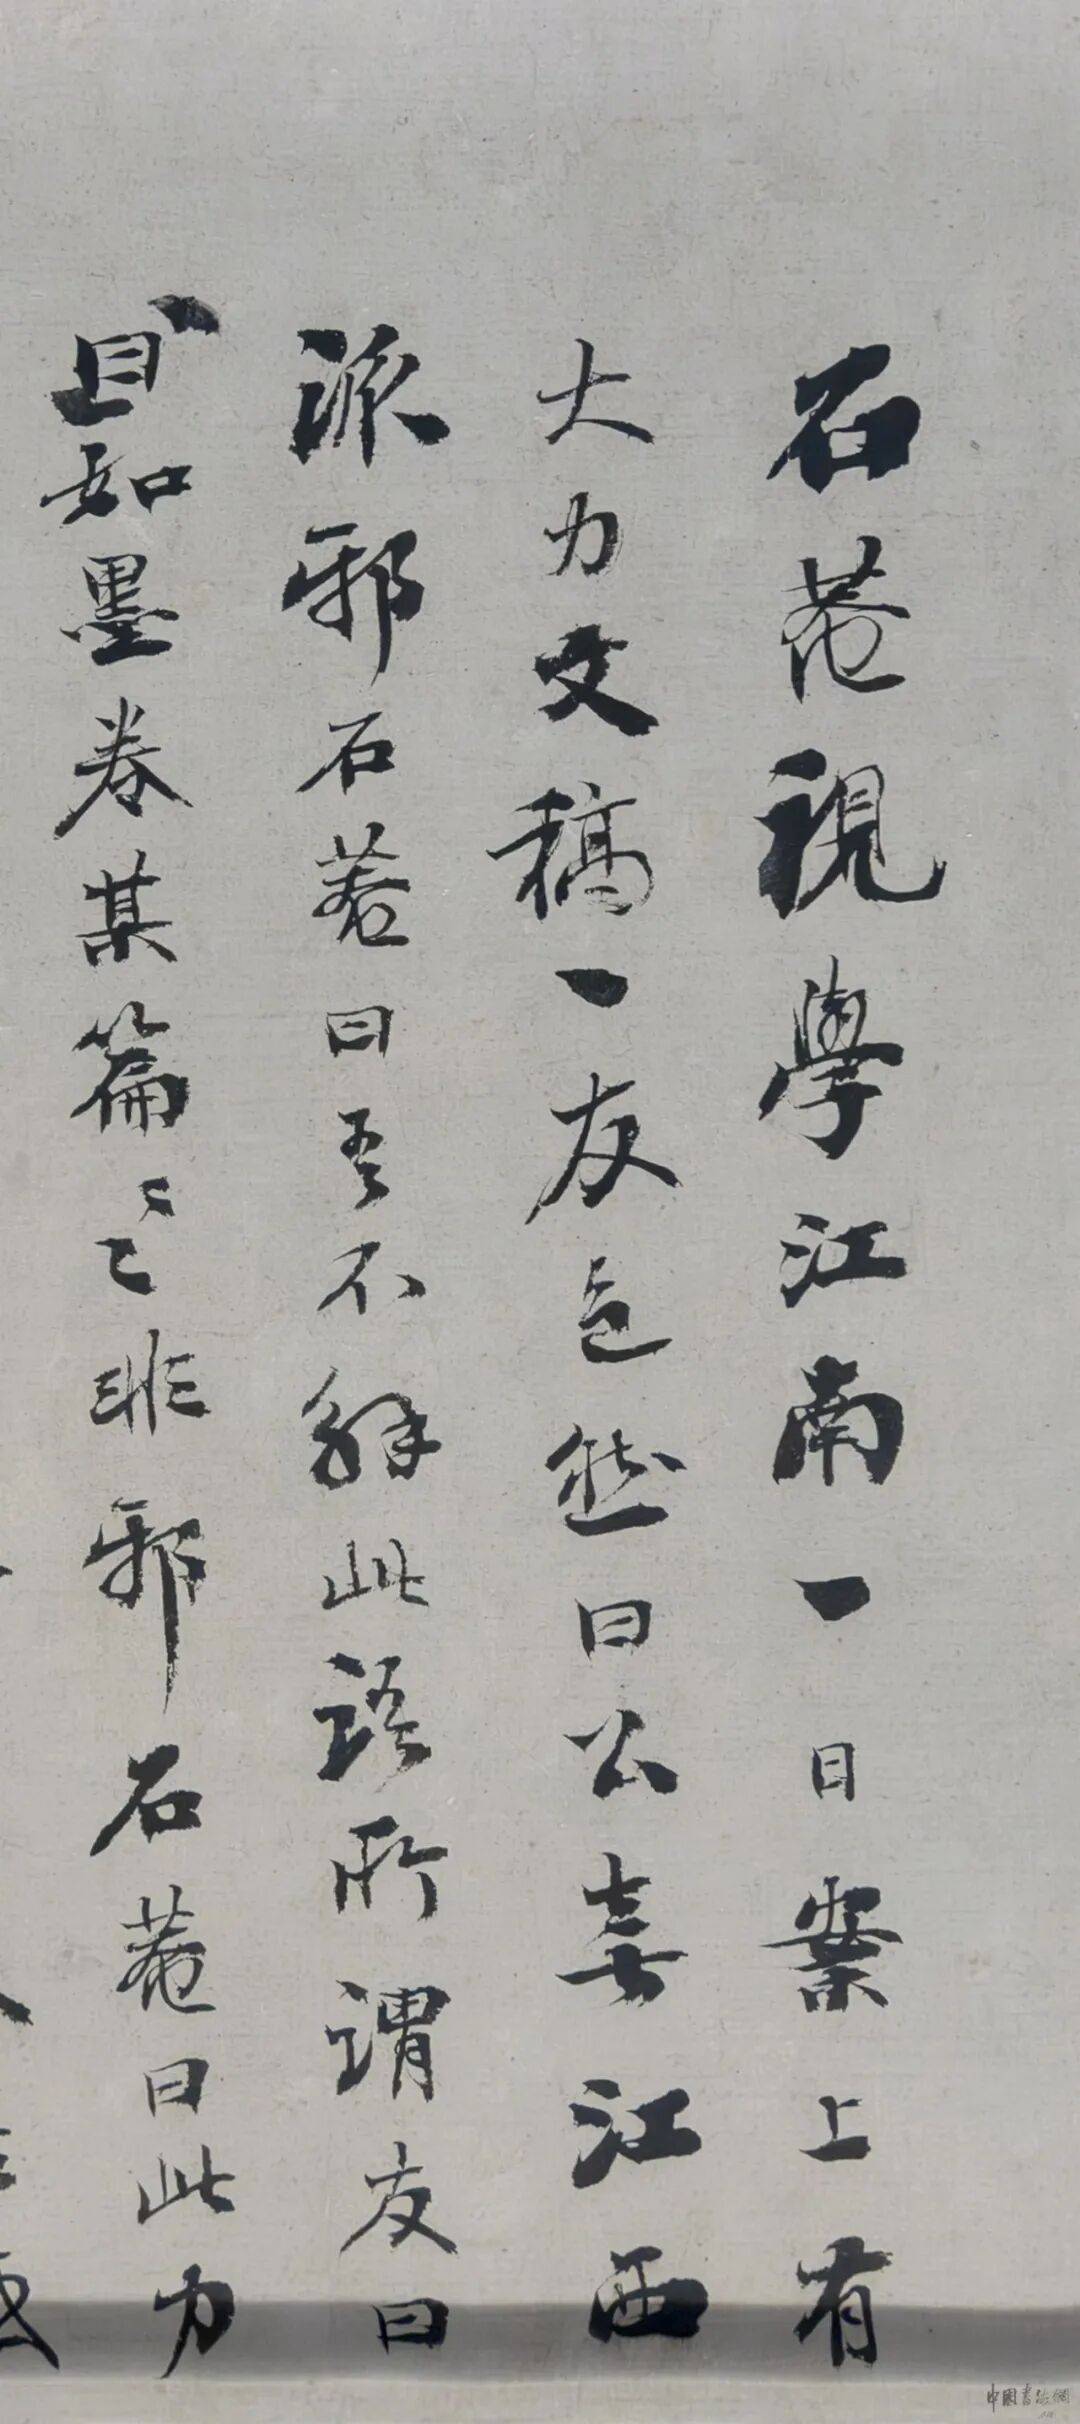 石菴視學江南一日案上有
大力文稿一友色然曰公喜江西
派邪石菴曰吾不解此語所謂友曰
且如墨卷某篇〻〻非邪石菴曰此力
中國書法網